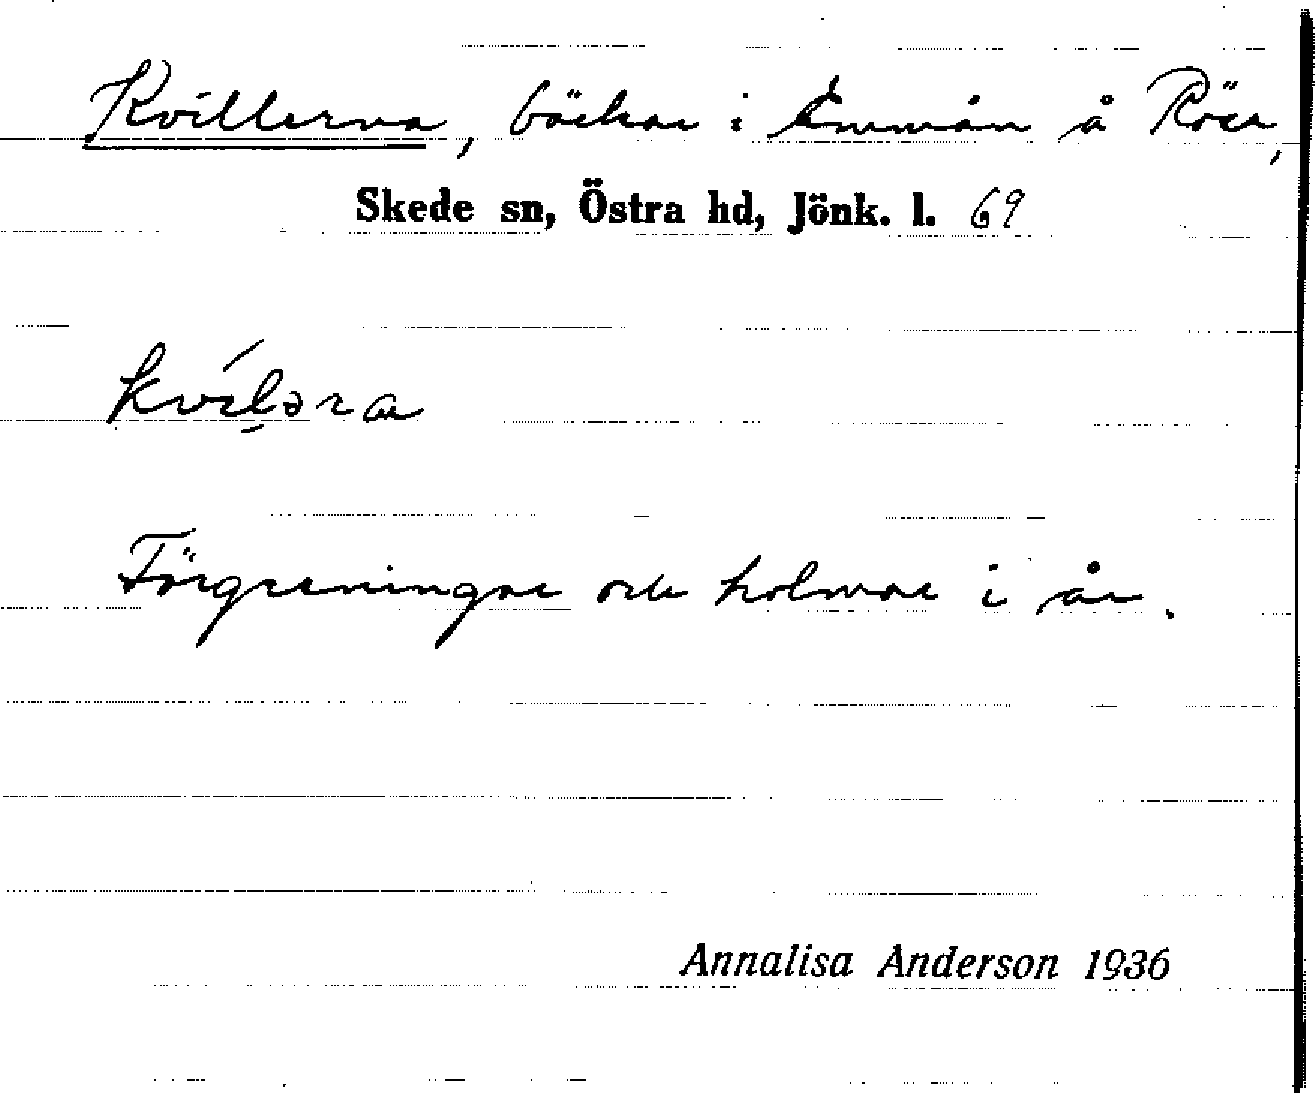 Kvillerna, bäckar i Emmån å Röer,
Skede sn, Östra hd, Jönk. l. 69
kvílǝra
Förgreningar och holmar i ån.
Annalisa Anderson 1936